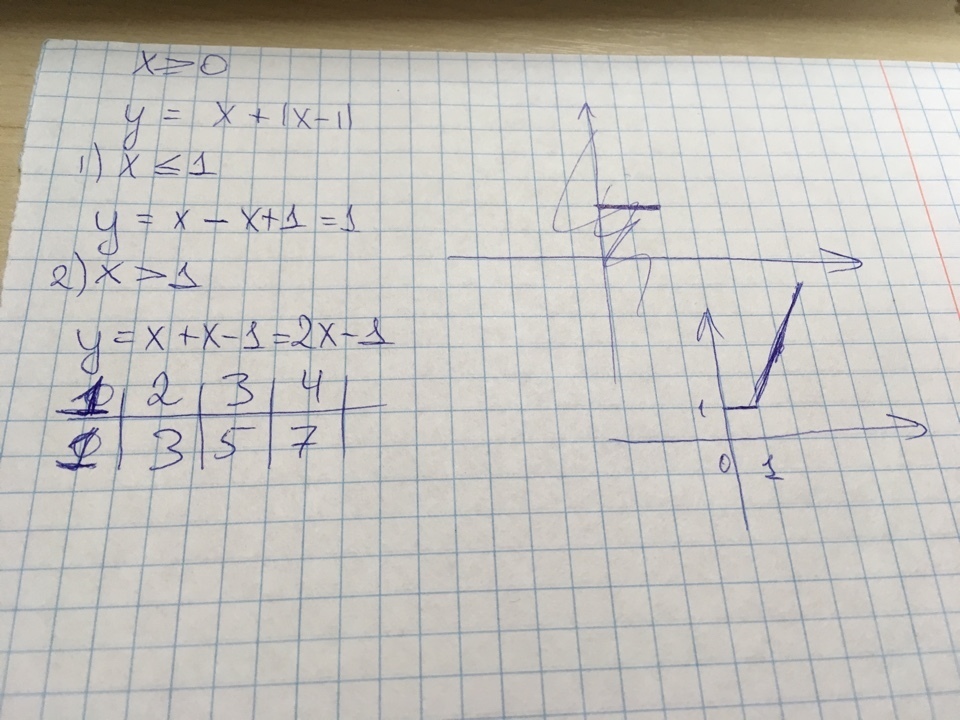 x ≥ 0
y = x + |x-1|
1) x ≤ 1
y = x - x+1 = 1
2) x > 1
y = x + x-1 = 2x-1
1 2 3 4
1 3 5 7
1
0 1